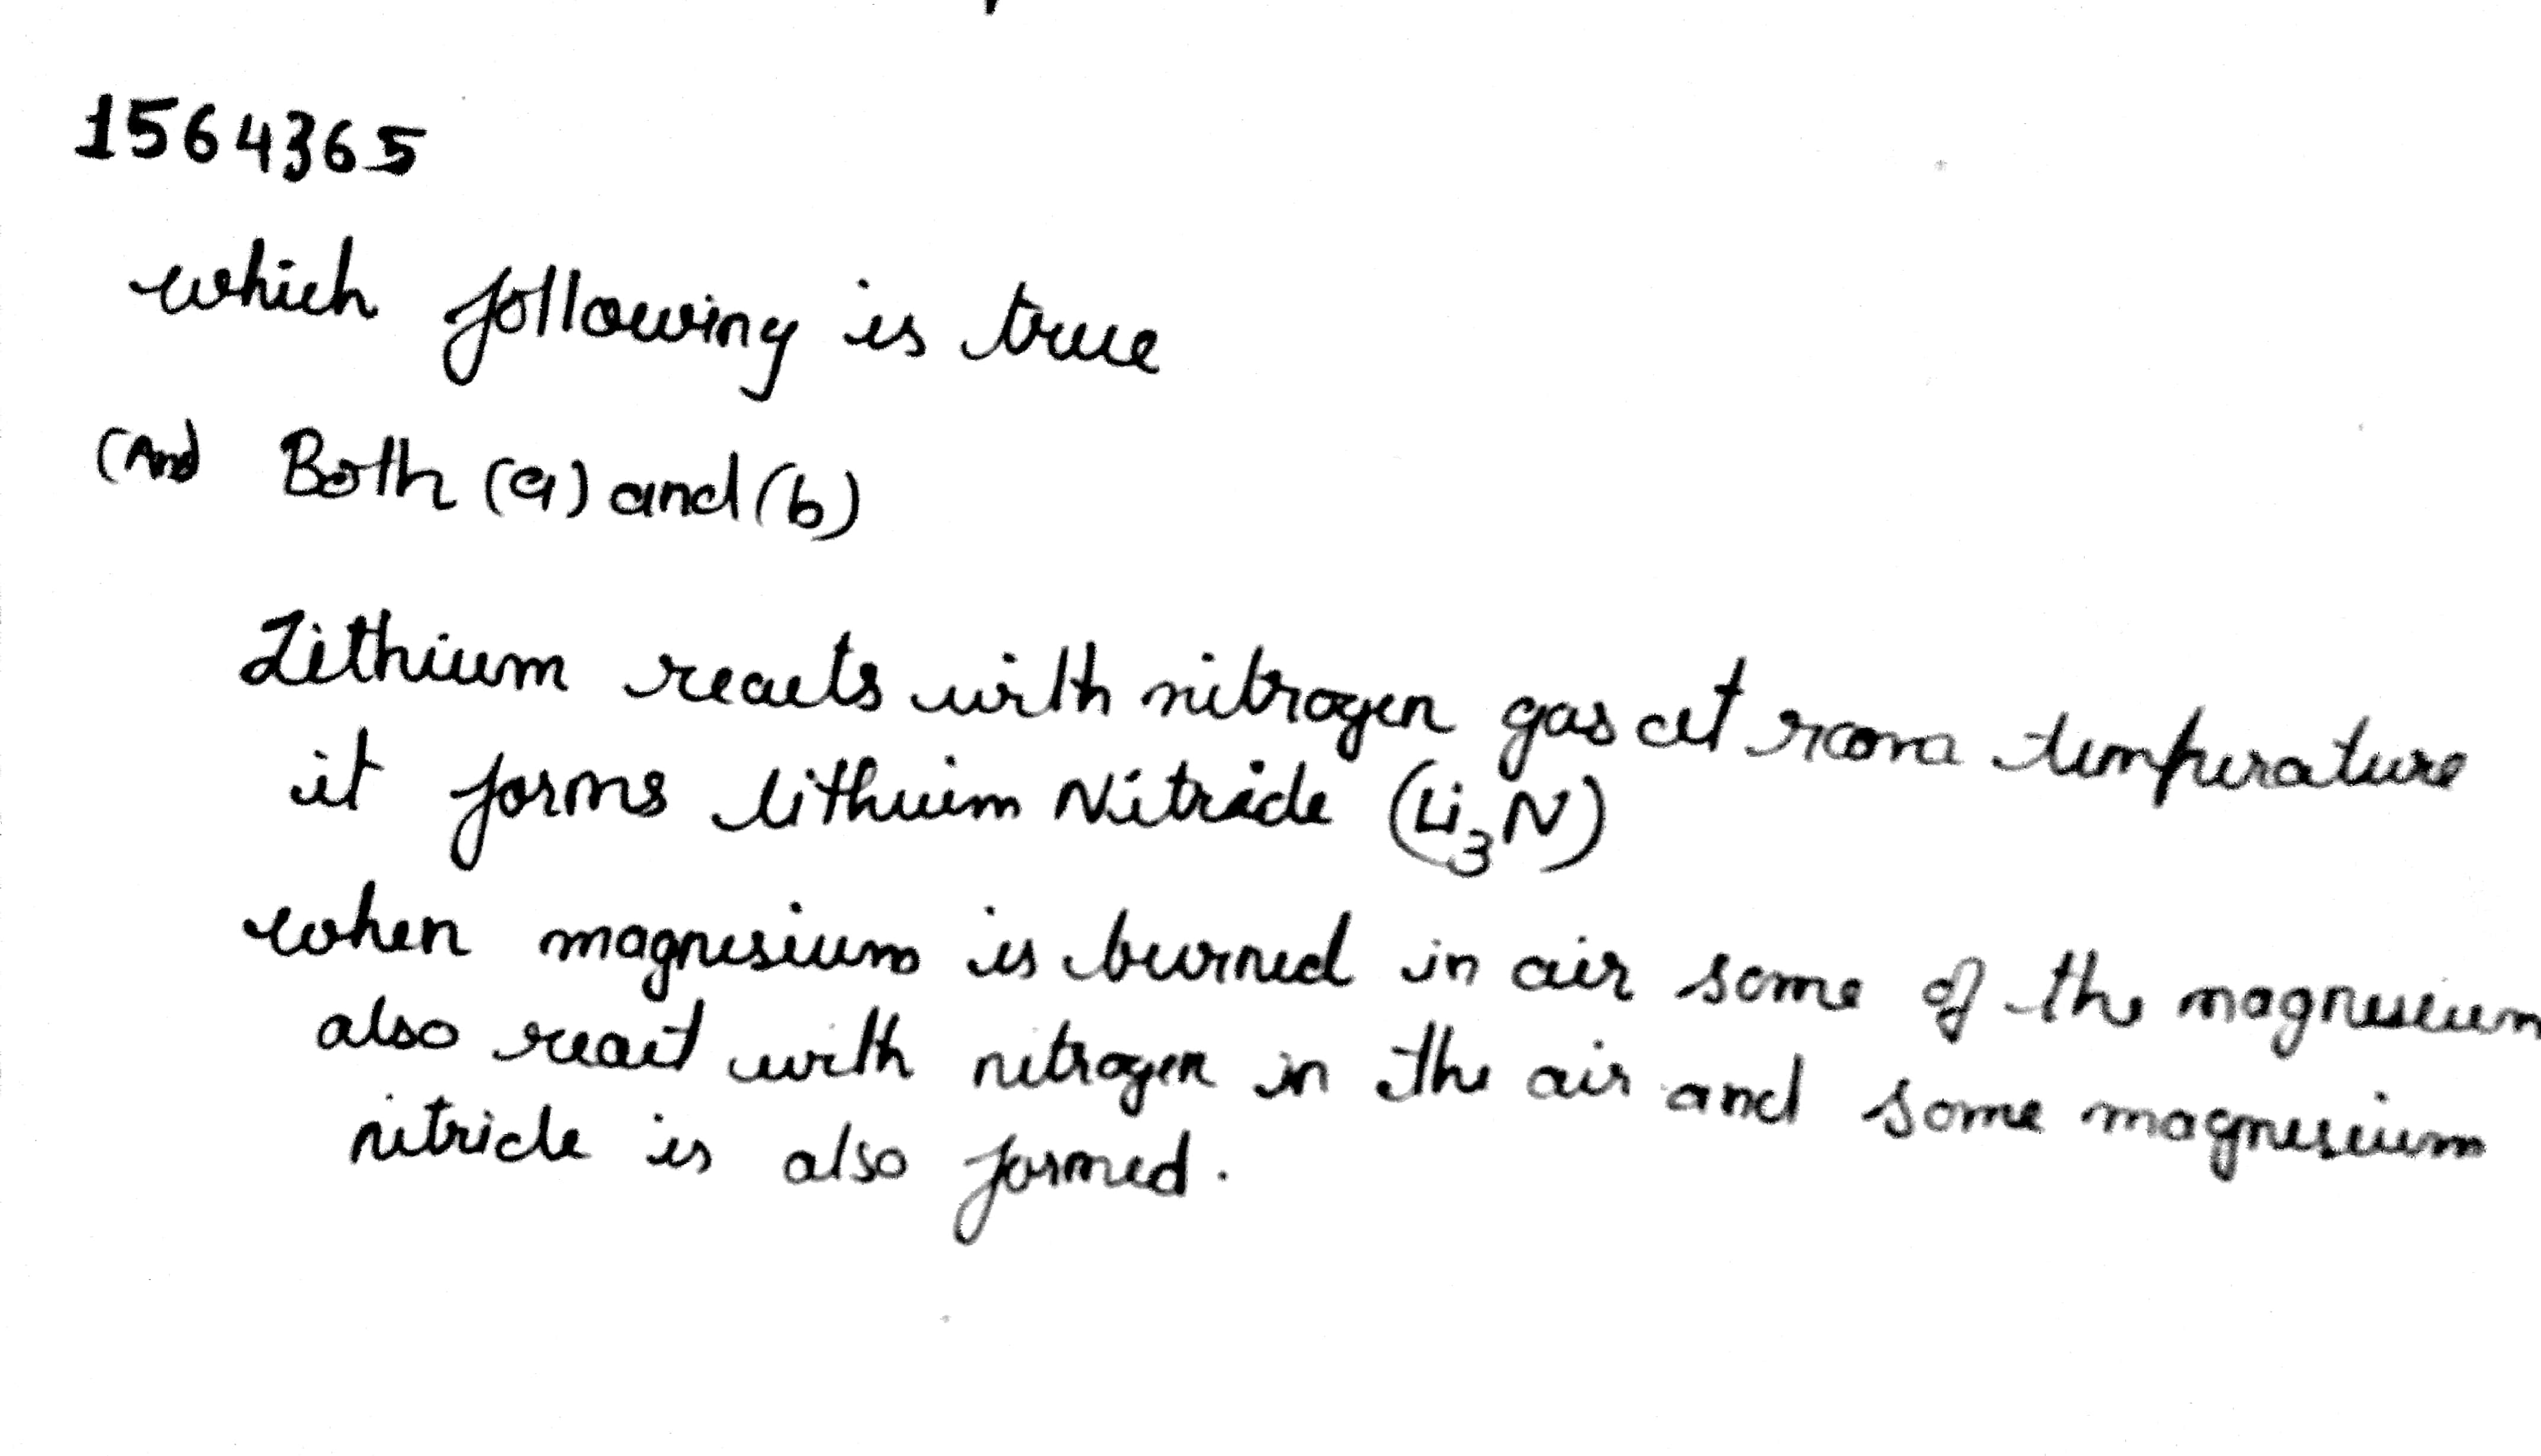 1564365
which following is true
(And Both (a) and (b)
Lithium reacts with nitrogen gas at room temperature
it forms lithuim Nitride (Li₃N)
when magnesium is burned in air some of the magnesium
also react with nitrogen in the air and some magnesium
nitride is also formed.